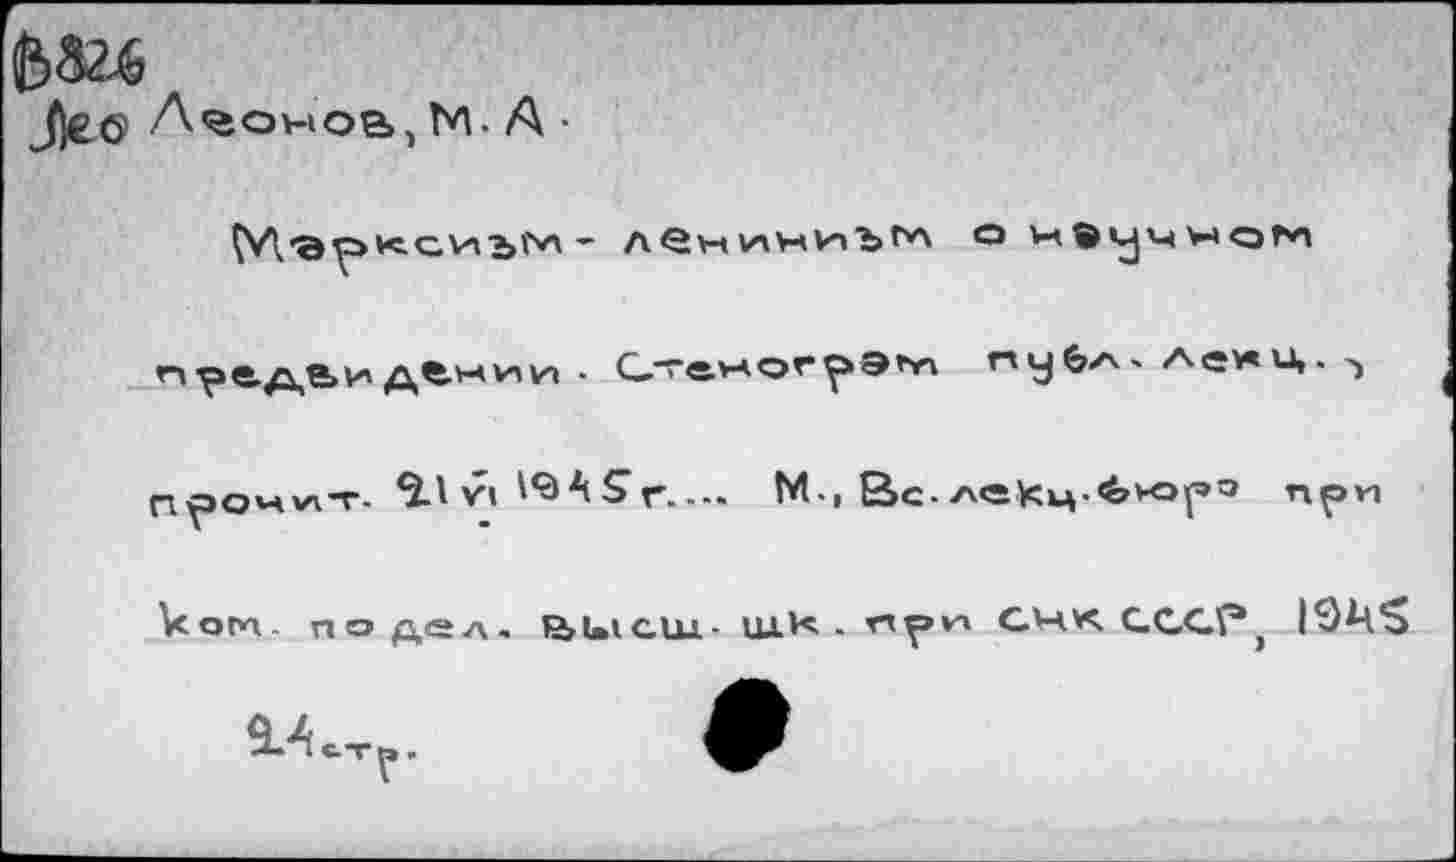 В826
Лео Леонов, М. А.
Марксизм - ленинизм о научном
предвидении. Стенограм публ. лекц.,
прочит. 21 VI 1945 г.... М., Вс. лекц. бюро при
Ком. по дел. высш. шк. при СНК СССР, 1945
24 стр.